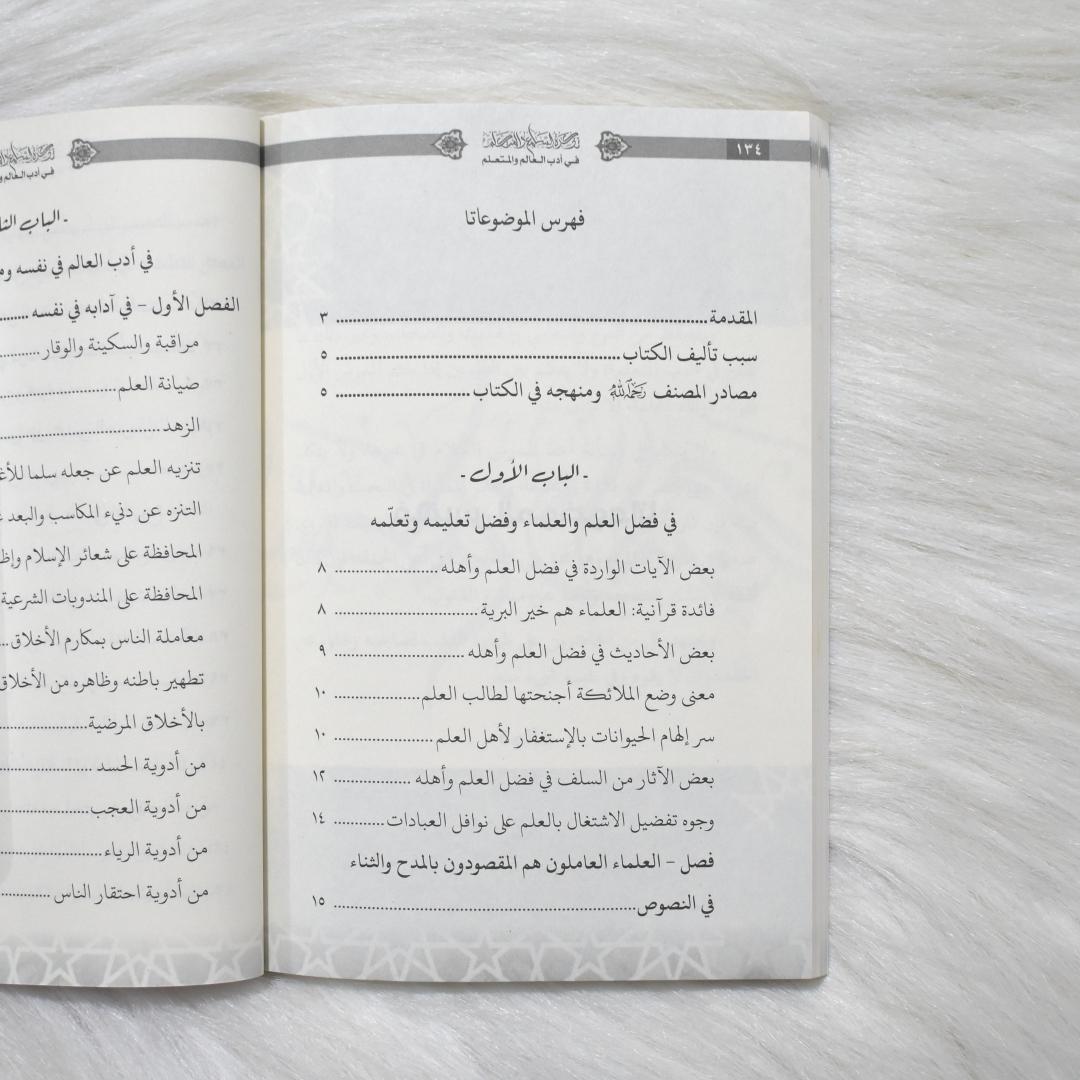 في أدب العالم والمتعلم
١٣٤
فهرس الموضوعاتا
المقدمة ........ ٣
سبب تأليف الكتاب ........ ٥
مصادر المصنف رحمه الله ومنهجه في الكتاب ........ ٥
- الباب الأول -
في فضل العلم والعلماء وفضل تعليمه وتعلّمه
بعض الآيات الواردة في فضل العلم وأهله ........ ٨
فائدة قرآنية: العلماء هم خير البرية ........ ٨
بعض الأحاديث في فضل العلم وأهله ........ ٩
معنى وضع الملائكة أجنحتها لطالب العلم ........ ١٠
سر إلهام الحيوانات بالإستغفار لأهل العلم ........ ١٠
بعض الآثار من السلف في فضل العلم وأهله ........ ١٢
وجوه تفضيل الاشتغال بالعلم على نوافل العبادات ........ ١٤
فصل – العلماء العاملون هم المقصودون بالمدح والثناء
في النصوص ........ ١٥
في أدب العالم
- الباب
في أدب العالم في نفسه
الفصل الأول – في آدابه في نفسه ........
مراقبة والسكينة والوقار ........
صيانة العلم ........
الزهد ........
تنزيه العلم عن جعله سلما
التنزه عن دنيء المكاسب والبعد
المحافظة على شعائر الإسلام
المحافظة على المندوبات الشرعية
معاملة الناس بمكارم الأخلاق ..
تطهير باطنه وظاهره من الأخلاق
بالأخلاق المرضية ........
من أدوية الحسد ........
من أدوية العجب ........
من أدوية الرياء ........
من أدوية احتقار الناس ........